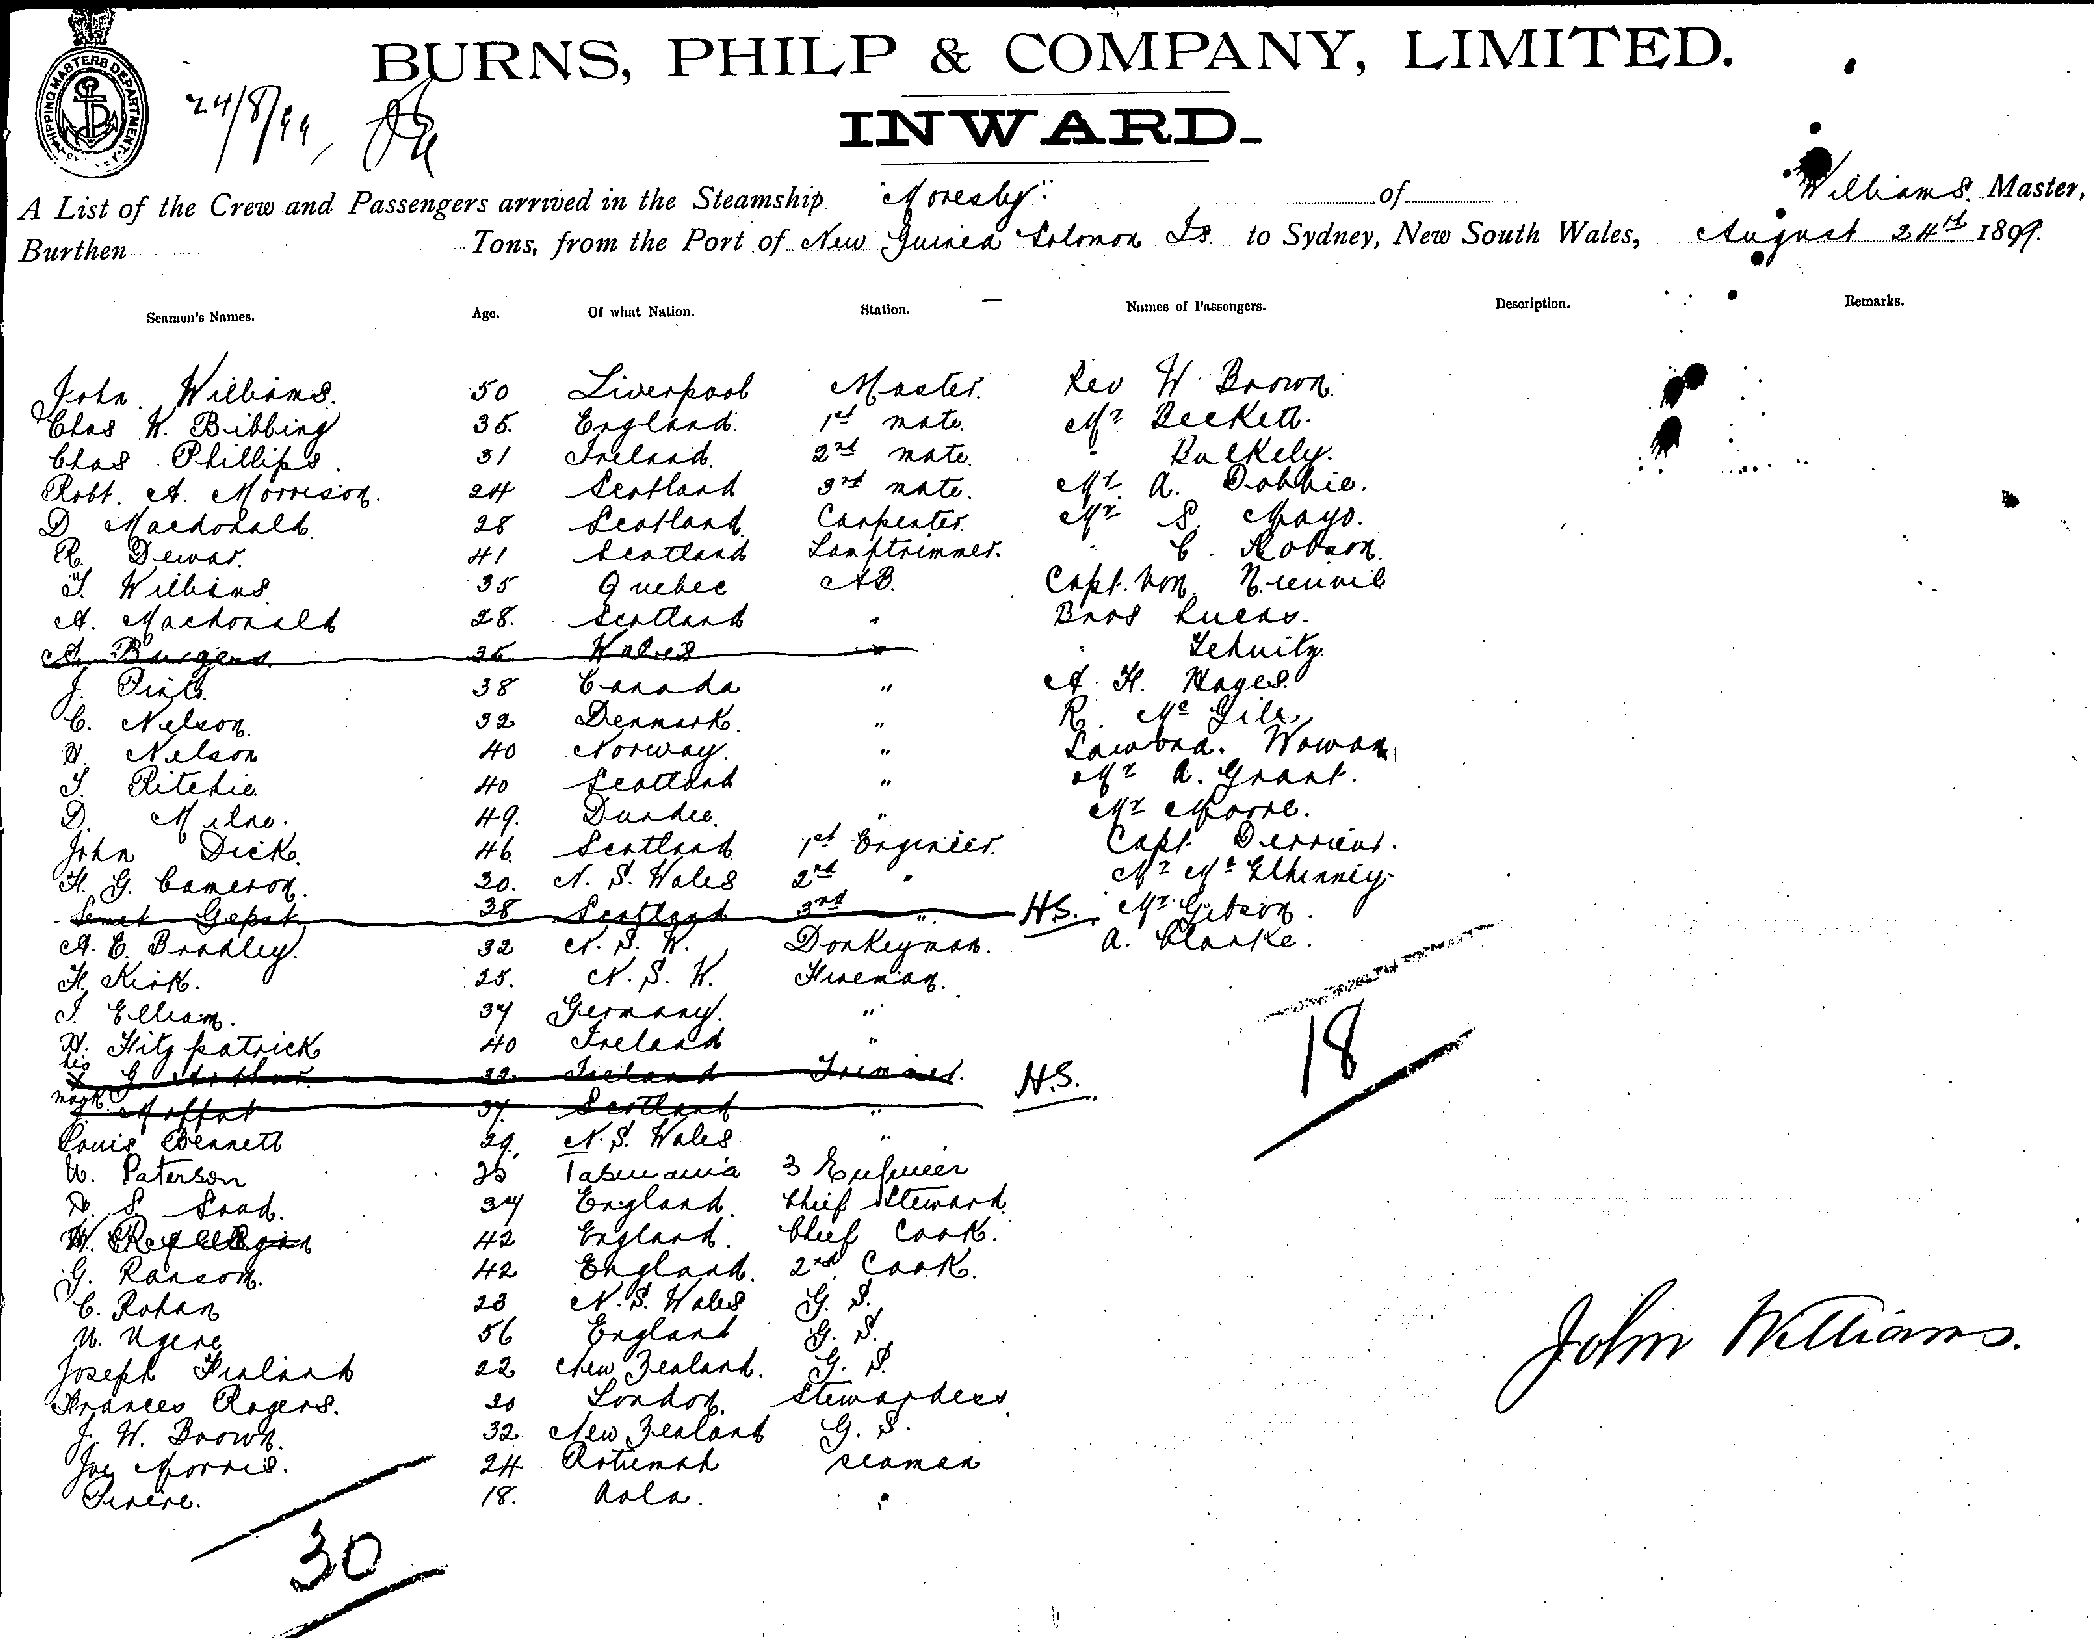 SHIPPING MASTERS DEPARTMENT
24/8/99,
BURNS, PHILP & COMPANY, LIMITED.
INWARD.
A List of the Crew and Passengers arrived in the Steamship "Moresby" of Williams. Master,
Burthen Tons, from the Port of New Guinea Solomon Is. to Sydney, New South Wales, August 24th 1899.
Seamen's Names. Age. Of what Nation. Station. Names of Passengers. Description. Remarks.
John Williams. 50 Liverpool Master. Rev W. Brown.
Chas W. Bibbing 35. England. 1st mate. Mr Beckett.
Chas Phillips. 31 Ireland. 2nd mate. " Buckely.
Robt. A. Morrison. 24 Scotland 3rd mate. Mr. A. Dobbie.
D. Macdonald. 28 Scotland. Carpenter. Mr S. Mayo.
R. Dewar. 41 Scotland Lamptrimmer. " C. Robson.
T. Williams. 35 Quebec AB. Capt. Von
A. Macdonald 28. Scotland " Bros Lucas.
A. Burgess. 35 Wales " "
J. 38 Canada " A. H. Hayes.
C. Nelson. 32 Denmark. " R. Mc
H. Nelson 40 Norway. "
T. Ritchie 40 Scotland " Mr A. Grant.
D. Milne. 49. Dundee. " Mr Moore.
John Dick. 46 Scotland 1st Engineer. Capt.
H. G. Cameron. 30. N. S. Wales 2nd " Mr McElhinney.
38 Scotland 3rd " H.S. Mr. Gibson.
A. E. Bradley. 32 N. S. W. Donkeyman. A. Clarke.
H. Kirk. 25. N. S. W. Fireman.
37 Germany. "
H. Fitzpatrick 40 Ireland "
his G. Arthur. 32. Ireland Trimmer. H.S.
mark Moffat 37. Scotland "
18
Louis Bennett 29. N. S. Wales "
W. Paterson 25 Tasmania 3 Engineer
S. 34 England. Chief Steward.
W. 42 England. Chief Cook.
G. Ransom. 42 England. 2nd Cook.
C. Rohan 23 N. S. Wales G. S.
56 England G. S.
Joseph 22 New Zealand. G. S.
Frances Rogers. 30 London. Stewardess.
J. W. Brown. 32 New Zealand G. S.
Joe Morris. 24 Rotumah seaman
18. Aola. "
30
John Williams.